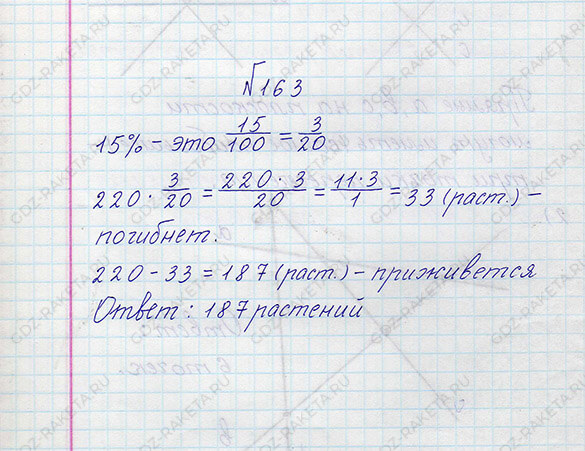 №163
15% - это 15/100 = 3/20
220 · 3/20 = 220 · 3/20 = 11 · 3/1 = 33 (раст.) -
погибнет.
220 - 33 = 187 (раст.) - приживется
Ответ: 187 растений
GDZ-RAKETA.RU